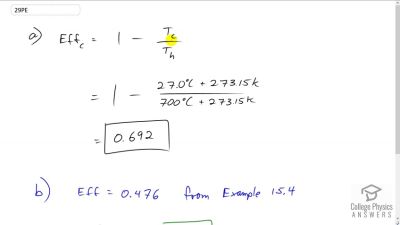 29PE
a) Eff_c = 1 - T_c / T_h
= 1 - 27.0°C + 273.15K / 700°C + 273.15K
= 0.692
b) Eff = 0.476 from Example 15.4
College Physics
ANSWERS